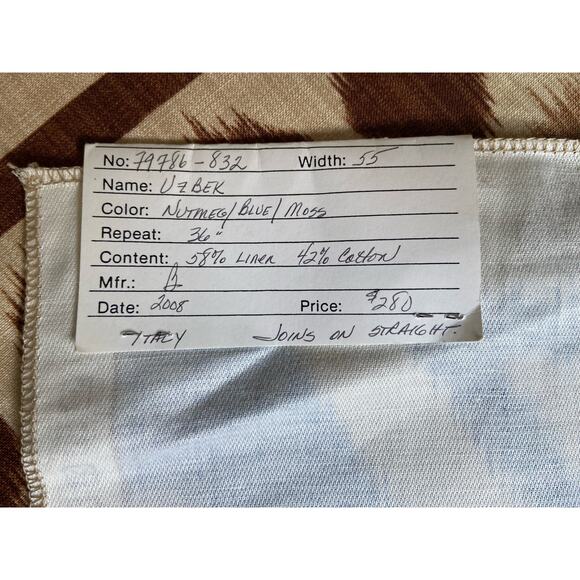 No: 79786-832 Width: 55
Name: UZBEK
Color: NUTMEG/BLUE/MOSS
Repeat: 36"
Content: 58% Linen 42% Cotton
Mfr.: B
Date: 2008 Price: $280
ITALY JOINS ON STRAIGHT.